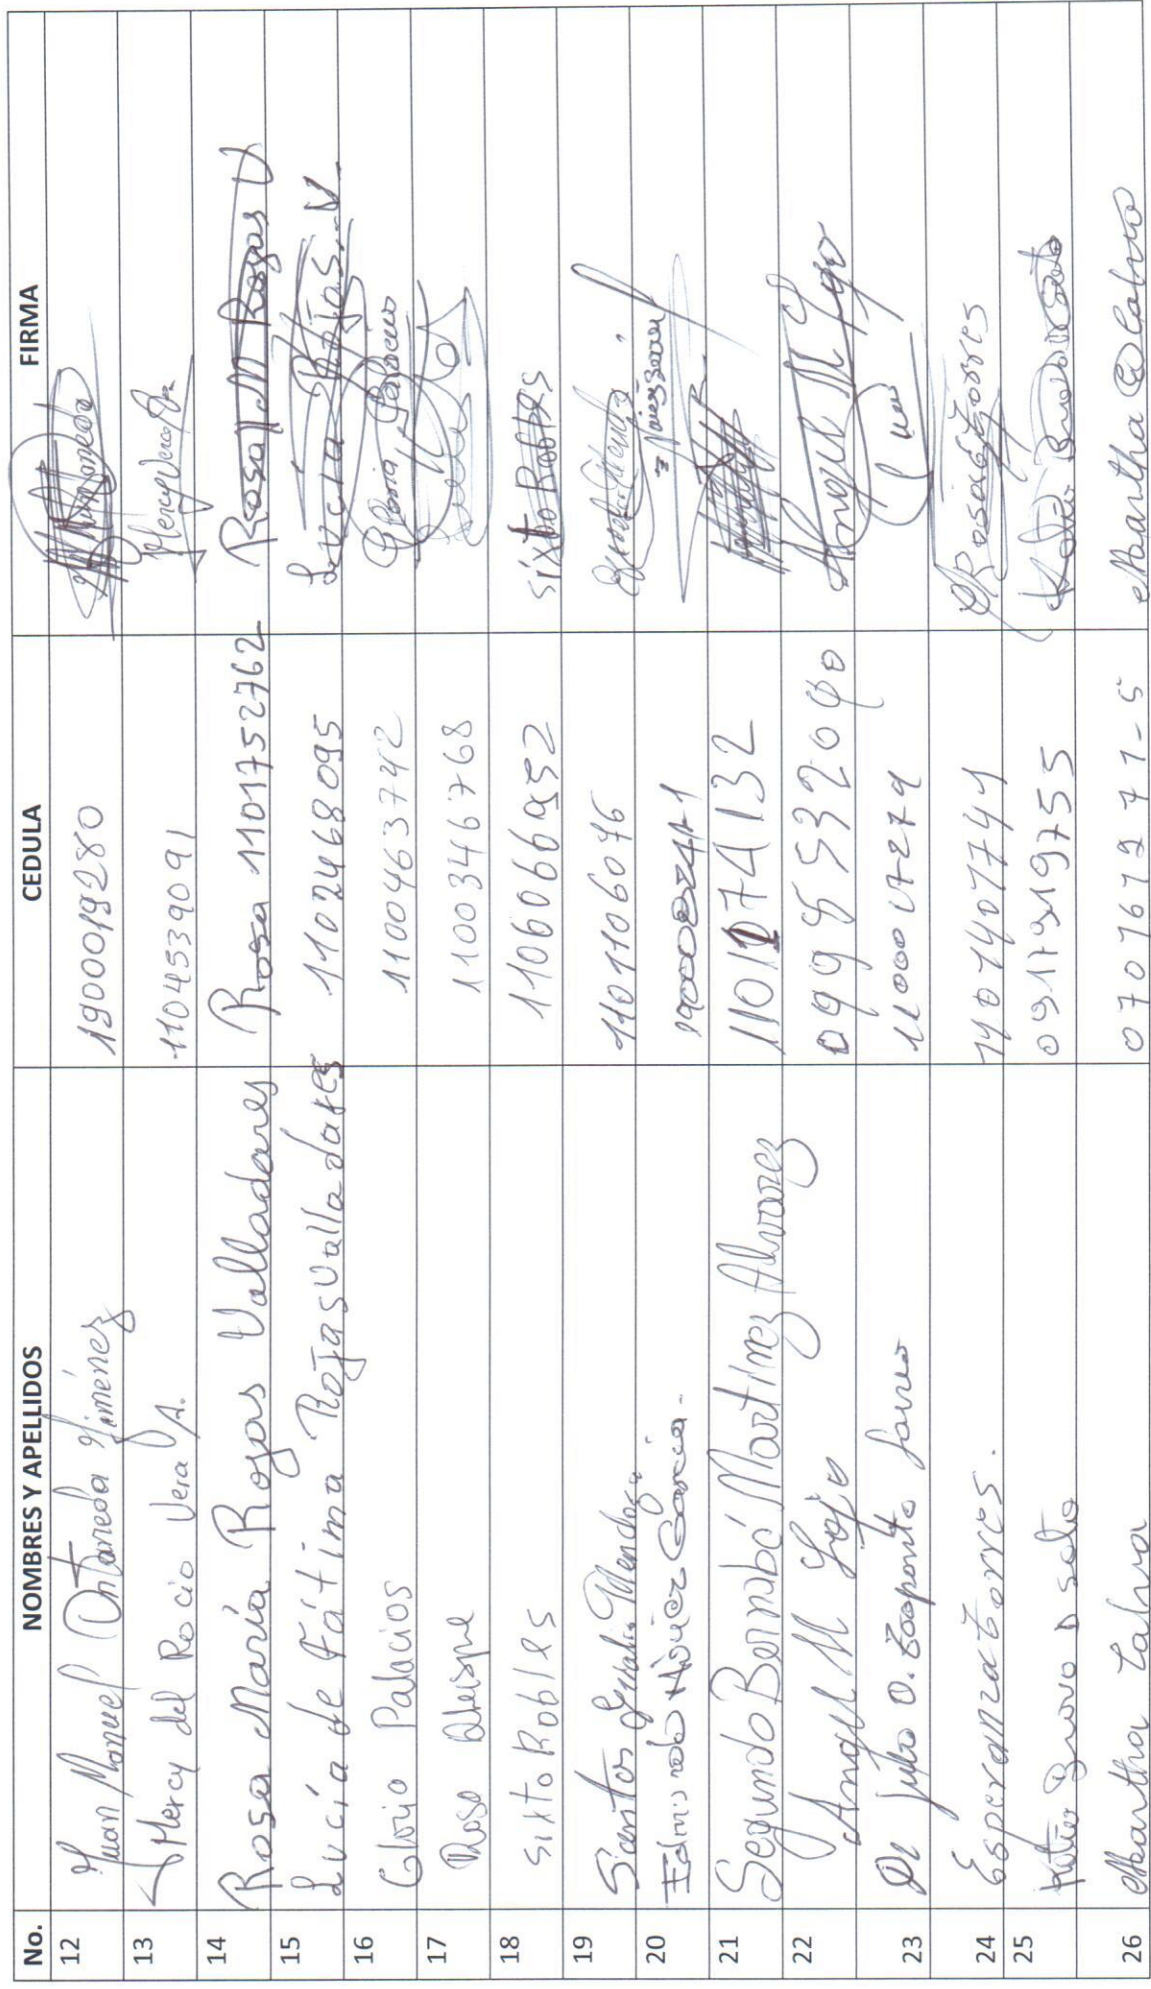 No. NOMBRES Y APELLIDOS CEDULA FIRMA
12 Juan Manuel Ontaneda Jiménez 1900019280
13 Mercy del Rocio Vera A. 1104539091
14 Rosa María Rojas Valladares Rosa 1101752762 Rosa M Rojas V
15 Lucía de Fátima Rojas Valladares 1102468095 Lucía Rojas V.
16 Gloria Palacios 1100463742 Gloria Palacios
17 Rosa 1100346768
18 Sixto Robles 1106066952 Sixto Robles
19 Santos Mendoza 1101106076
20 Edmundo García
21 Segundo Bernabé Martínez Alvarez 1101074132
22 Angel M 0995532640 Angel M
23 Dr Julio O.
24 Esperanza Torres. 1101407741 Torres
25 Bravo Soto 0917919755
26 Martha Calva 070167971-5 Martha Calva